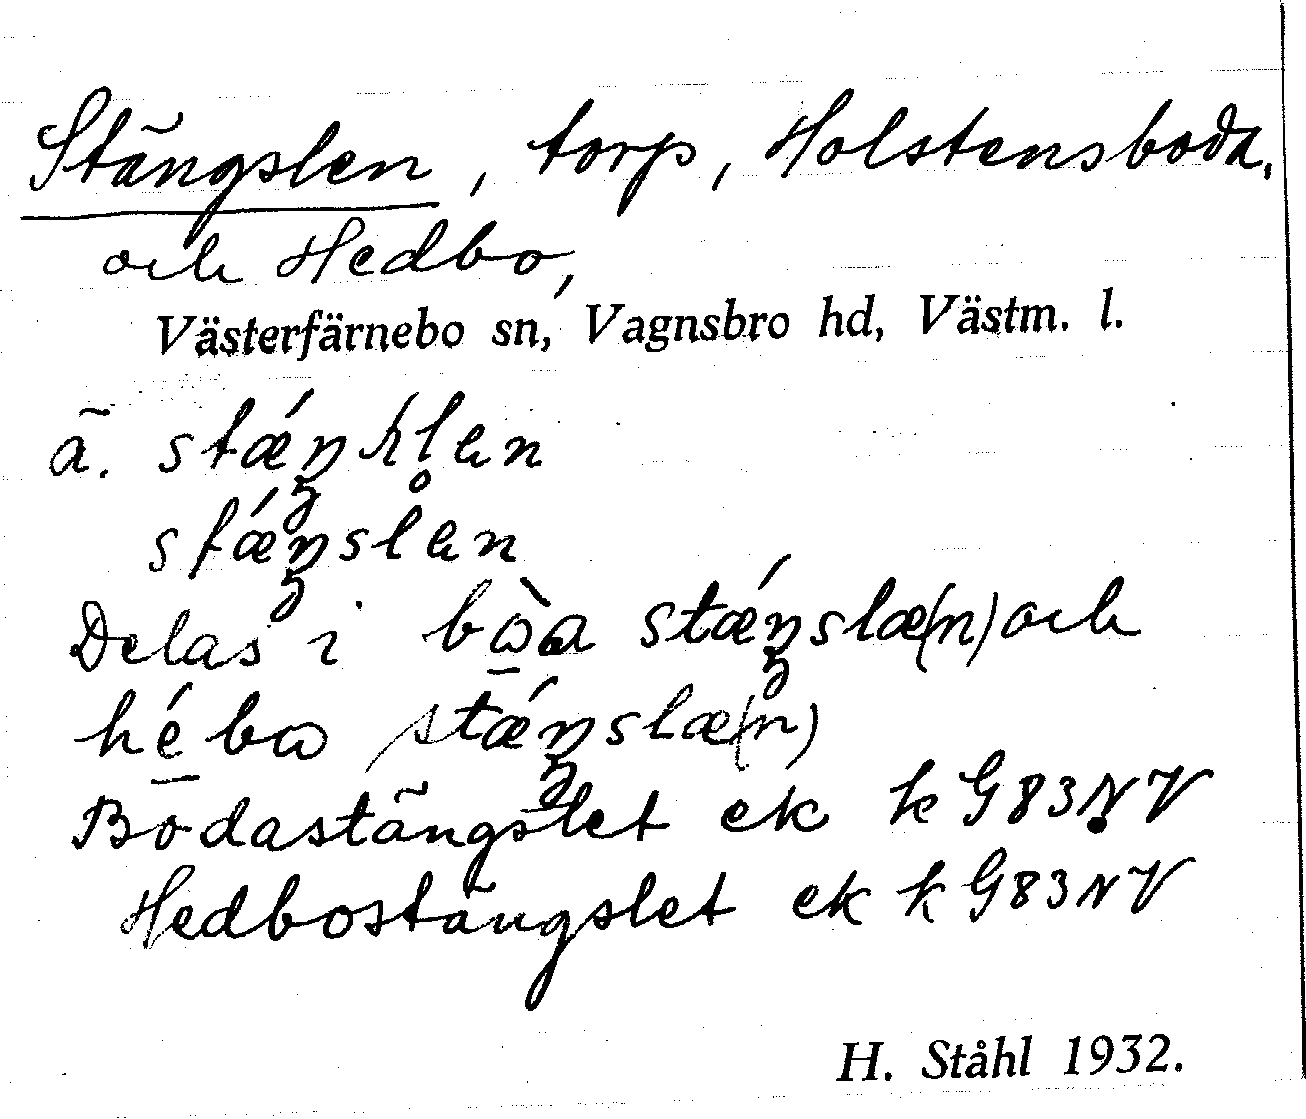 Stängslen, torp, Holstensboda,
och Hedbo,
Västerfärnebo sn, Vagnsbro hd, Västm. l.
ä. stǽŋkl̥en
stǽŋslen
Delas i bòa stǽŋslæ(n) och
hébo stǽŋslæ(n)
Bodastängslet ek k G83NV
Hedbostängslet ek k G83NV
H. Ståhl 1932.